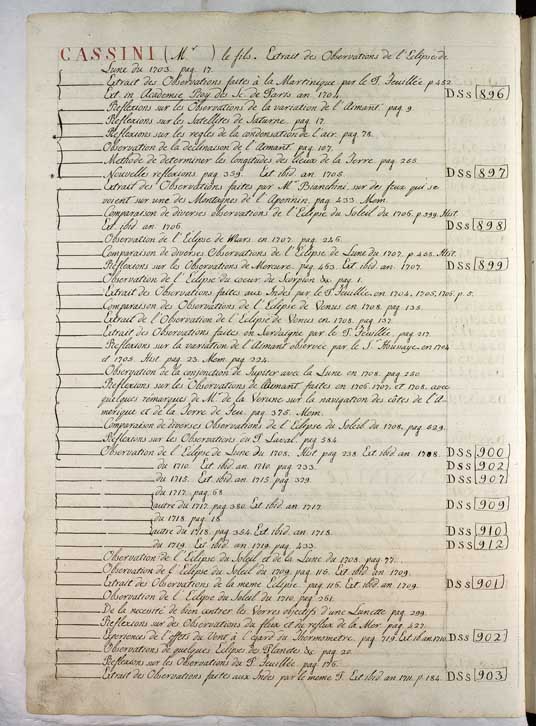 CASSINI (Mr ) le fils. Extrait des Observations de l'Eclipse de
Lune du 1703. pag. 17.
Extrait des Observations faites à la Martinique par le P. Feuillée p. 452
Est in Academie Roy. des Sc. de Paris an. 1704. DSs 896
Reflexions sur les Observations de la variation de l'Aimant. pag. 9.
Reflexions sur les Satellites de Saturne. pag. 17.
Reflexions sur les regles de la condensation de l'air. pag. 78.
Observation de la declinaison de l'Aimant. pag. 107.
Methode de determiner les longitudes des Lieux de la Terre. pag. 255.
Nouvelle reflexions. pag. 359. Est ibid an. 1705. DSs 897
Extrait des Observations faites par Mr. Bianchini, sur des feux qui se
voient sur une des Montagnes de l'Apennin. pag. 433. Mem.
Comparaison de diverses observations de l'Eclipse du Soleil du 1706. p. 399. Hist.
Est. ibid. an 1706. DSs 898
Observation de l'Eclipse de Mars en 1707. pag. 246.
Comparaison de diverses Observations de l'Eclipse de Lune du 1707. p. 408. Hist.
Reflexions sur les Observations de Mercure. pag. 463. Est ibid an. 1707. DSs 899
Observation de l'Eclipse du coeur de Scorpion &c. pag. 1.
Extrait des Observations faites aux Indes par le P. Feuillée, en 1704, 1705, 1706. p. 5.
Comparaison des Observations de l'Eclipse de Venus en 1708. pag. 135.
Extrait de l'Observation de l'Eclipse de Venus en 1708. pag. 137.
Extrait des Observations faites en Sardaigne par le P. Feuillée. pag. 217.
Reflexions sur la variation de l'Aimant observée par le Sr. Houssaye en 1704
et 1705. Hist. pag. 23. Mem. pag. 224.
Observation de la conjonction de Jupiter avec la Lune en 1708. pag. 250.
Reflexions sur les Observations de l'Aimant faites en 1706, 1707, et 1708, avec
quelques remarques de Mr. de la Verune sur la navigation des côtes de l'A-
merique et de la Terre de Feu. pag. 375. Mem.
Comparaison de diverses Observations de l'Eclipse du Soleil du 1708. pag. 529.
Reflexions sur les Observations du P. Laval. pag. 584.
Observation de l'Eclipse de Lune du 1708. Hist. pag. 238. Est ibid. an. 1708. DSs 900
du 1710. Est ibid. an. 1710. pag. 233. DSs 902
du 1715. Est ibid. an. 1715. pag. 329. DSs 907
du 1717. pag. 68
autre du 1717. pag. 380. Est ibid an. 1717. DSs 909
du 1718. pag. 18.
autre du 1718. pag. 354. Est ibid. an. 1718. DSs 910
du 1719. Est. ibid. an. 1719. pag. 433. DSs 912
Observation de l'Eclipse du Soleil et de la Lune du 1708. pag. 77.
Observation de l'Eclipse du Soleil du 1709. pag. 116. Est ibid. an. 1709.
Extrait des Observations de la meme Eclipse. pag. 116. Est ibid. an. 1709. DSs 901
Observation de l'Eclipse du Soleil du 1710. pag. 261.
De la necessité de bien centrer les Verres objectifs d'une Lunette. pag. 299.
Reflexions sur des Observations du flux et du reflux de la Mer. pag. 427.
Experience de l'effets du Vent à l'égard du Thermometre. pag. 719. Est ib. an. 1710. DSs 902
Observations de quelques Eclipses des Planetes &c. pag. 20.
Reflexions sur les Observations du P. Feuillée. pag. 176.
Extrait des Observations faites aux Indes par le meme P. Est ibid an. 1711. p. 184. DSs 903